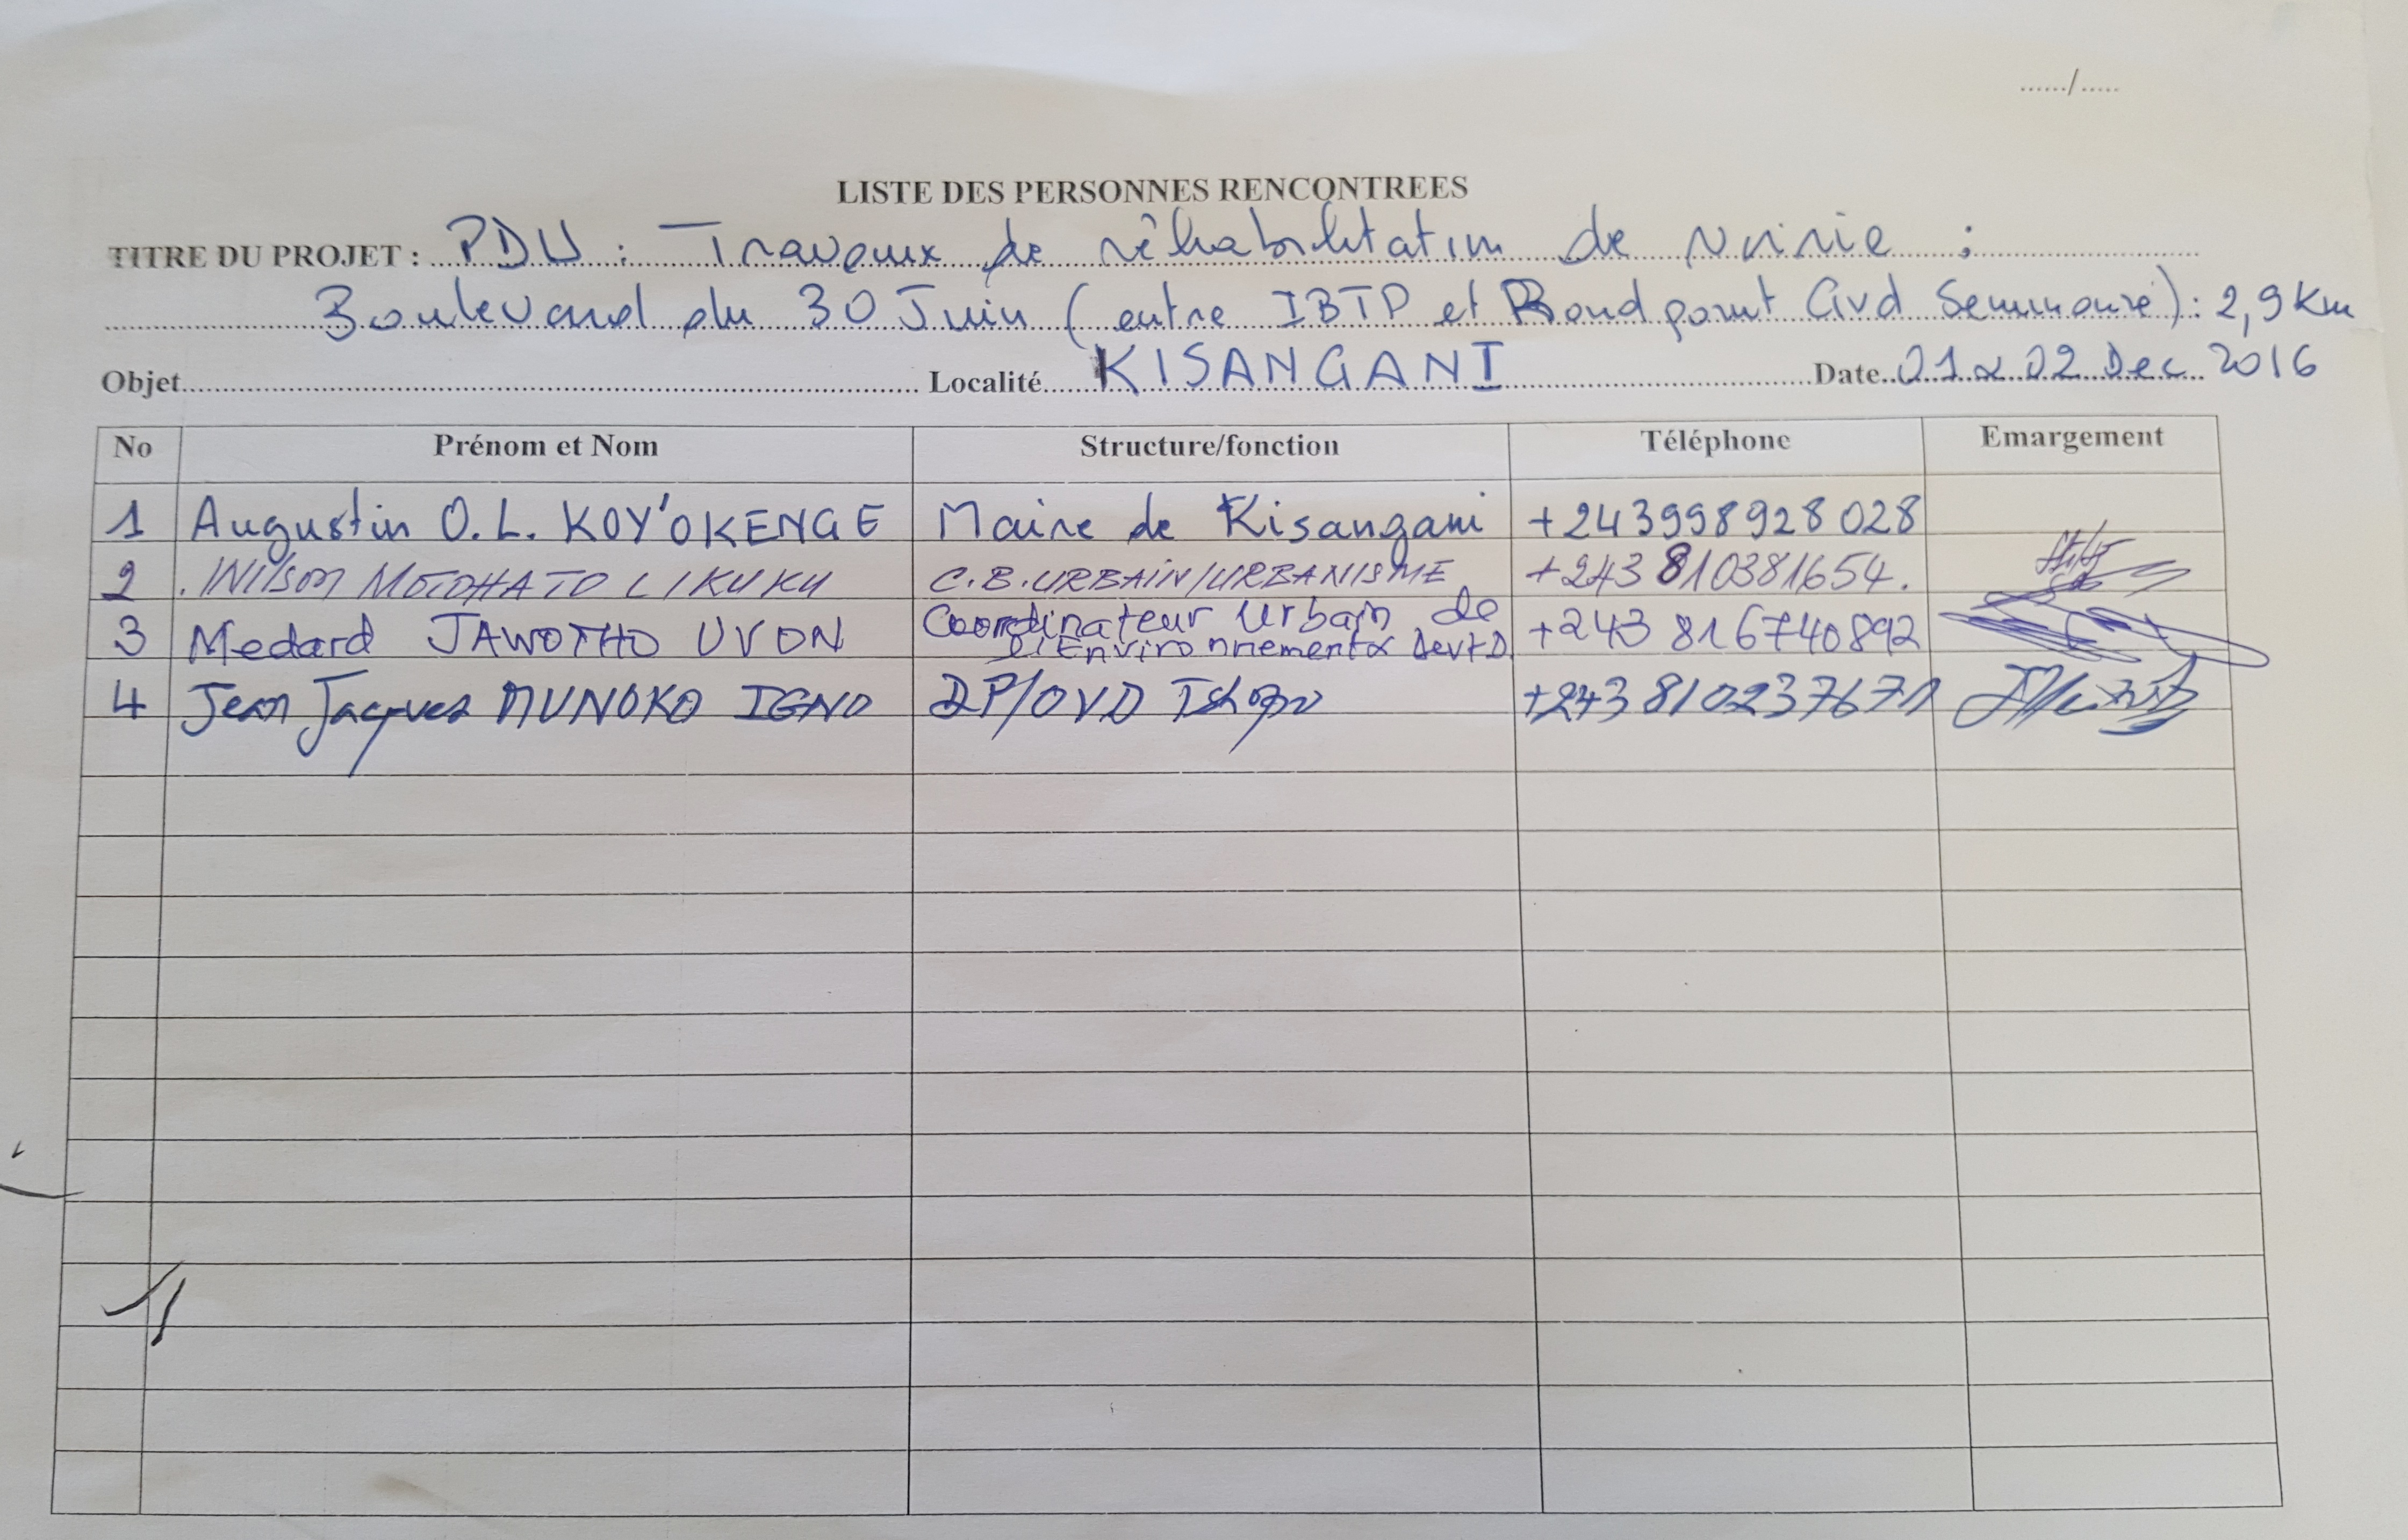 ....../.....
LISTE DES PERSONNES RENCONTREES
TITRE DU PROJET : PDU : Travaux de réhabilitation de voirie :
Boulevard du 30 Juin (entre IBTP et Rond point Gvd Seminaire) : 2,9 Km
Objet.......... Localité KISANGANI Date 01 & 02 Dec 2016
No Prénom et Nom Structure/fonction Téléphone Emargement
1 Augustin O.L. KOY'OKENGE Maire de Kisangani +243998928028
2 Wilson LIKUKU C.B.URBAIN/URBANISME +243810381654.
3 Medard JAWOTHO UVON Coordinateur Urbain de
l'Environnement & Devt D. +243 816740892
4 Jean Jacques MUNOKO IGNO DP/OVD Tshopo +243810237671